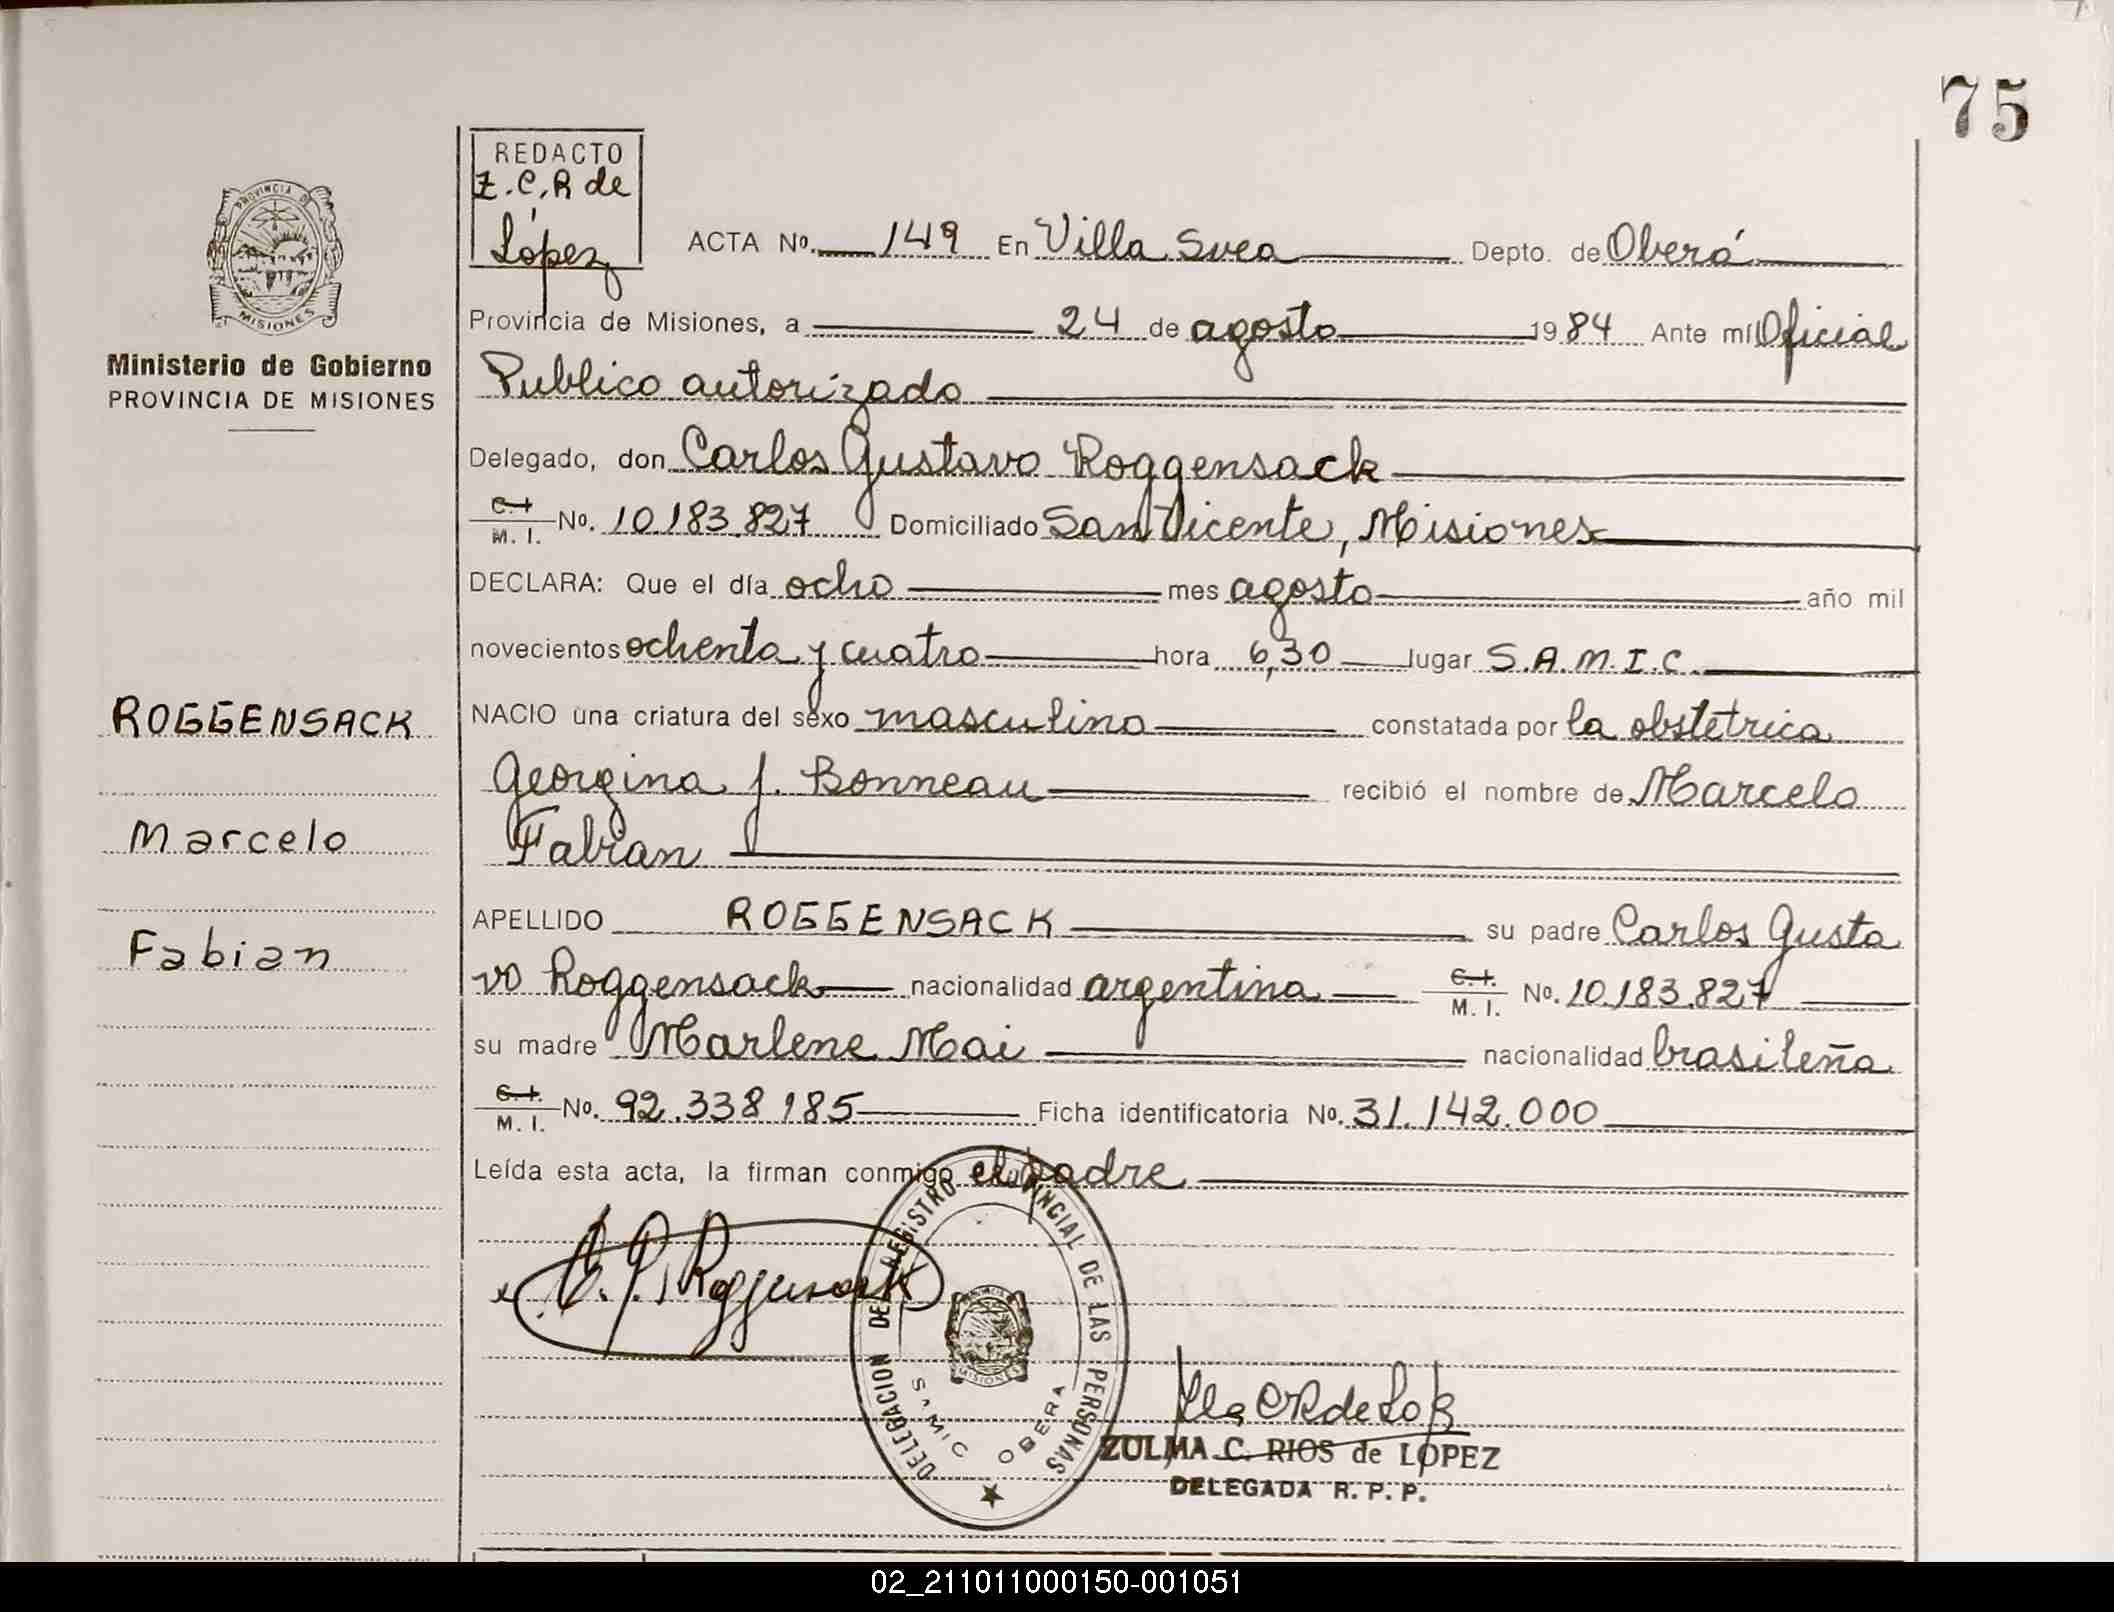 75
REDACTO
Z.C.R de
López
PROVINCIA DE
MISIONES
Ministerio de Gobierno
PROVINCIA DE MISIONES
ACTA No. 149 En Villa Svea Depto. de Oberá
Provincia de Misiones, a 24 de agosto 1984 Ante mí Oficial
Publico autorizado
Delegado, don Carlos Gustavo Roggensack
C.I. M. I. No. 10.183.827 Domiciliado San Vicente, Misiones
DECLARA: Que el día ocho mes agosto año mil
novecientos ochenta y cuatro hora 6,30 lugar S.A.M.I.C.
NACIO una criatura del sexo masculino constatada por la obstetrica
Georgina J. Bonneau recibió el nombre de Marcelo
Fabian
APELLIDO ROGGENSACK su padre Carlos Gusta
vo Roggensack nacionalidad argentina C.I. M. I. No. 10.183.827
su madre Marlene Mai nacionalidad brasileña
C.I. M. I. No. 92.338.185 Ficha identificatoria No. 31.142.000
Leída esta acta, la firman conmigo el padre
ROGGENSACK
Marcelo
Fabian
C. G. Roggensack
DELEGACION DEL REGISTRO PROVINCIAL DE LAS PERSONAS
SAMIC OBERA
MISIONES
ZULMA C. RIOS de LOPEZ
DELEGADA R. P. P.
02_211011000150-001051